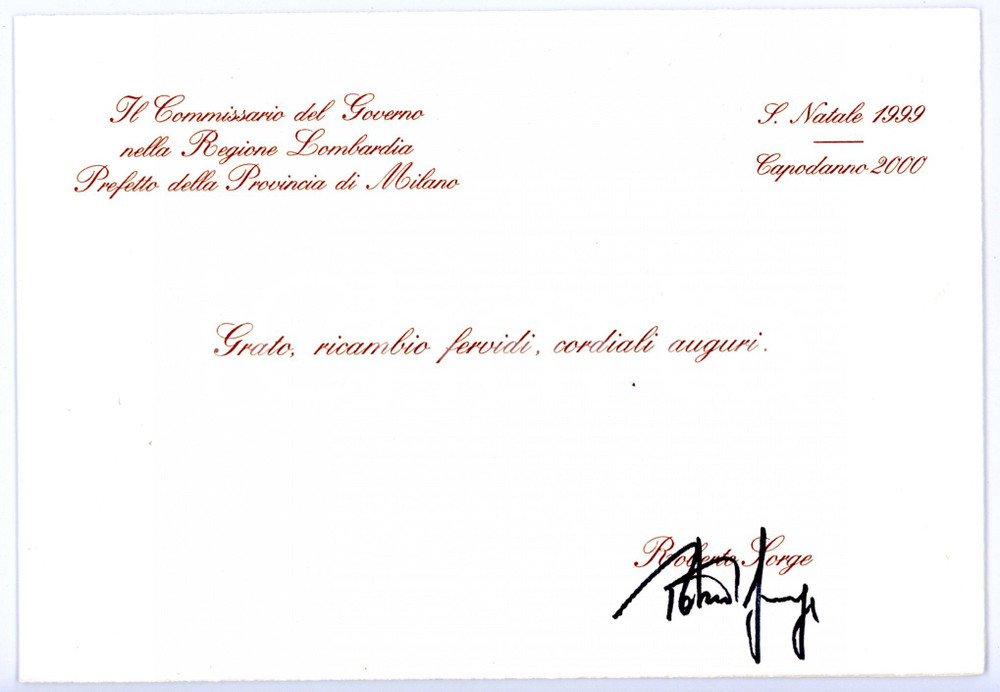 Il Commissario del Governo
nella Regione Lombardia
Prefetto della Provincia di Milano
S. Natale 1999
Capodanno 2000
Grato, ricambio fervidi, cordiali auguri.
Roberto Sorge
Roberto Sorge